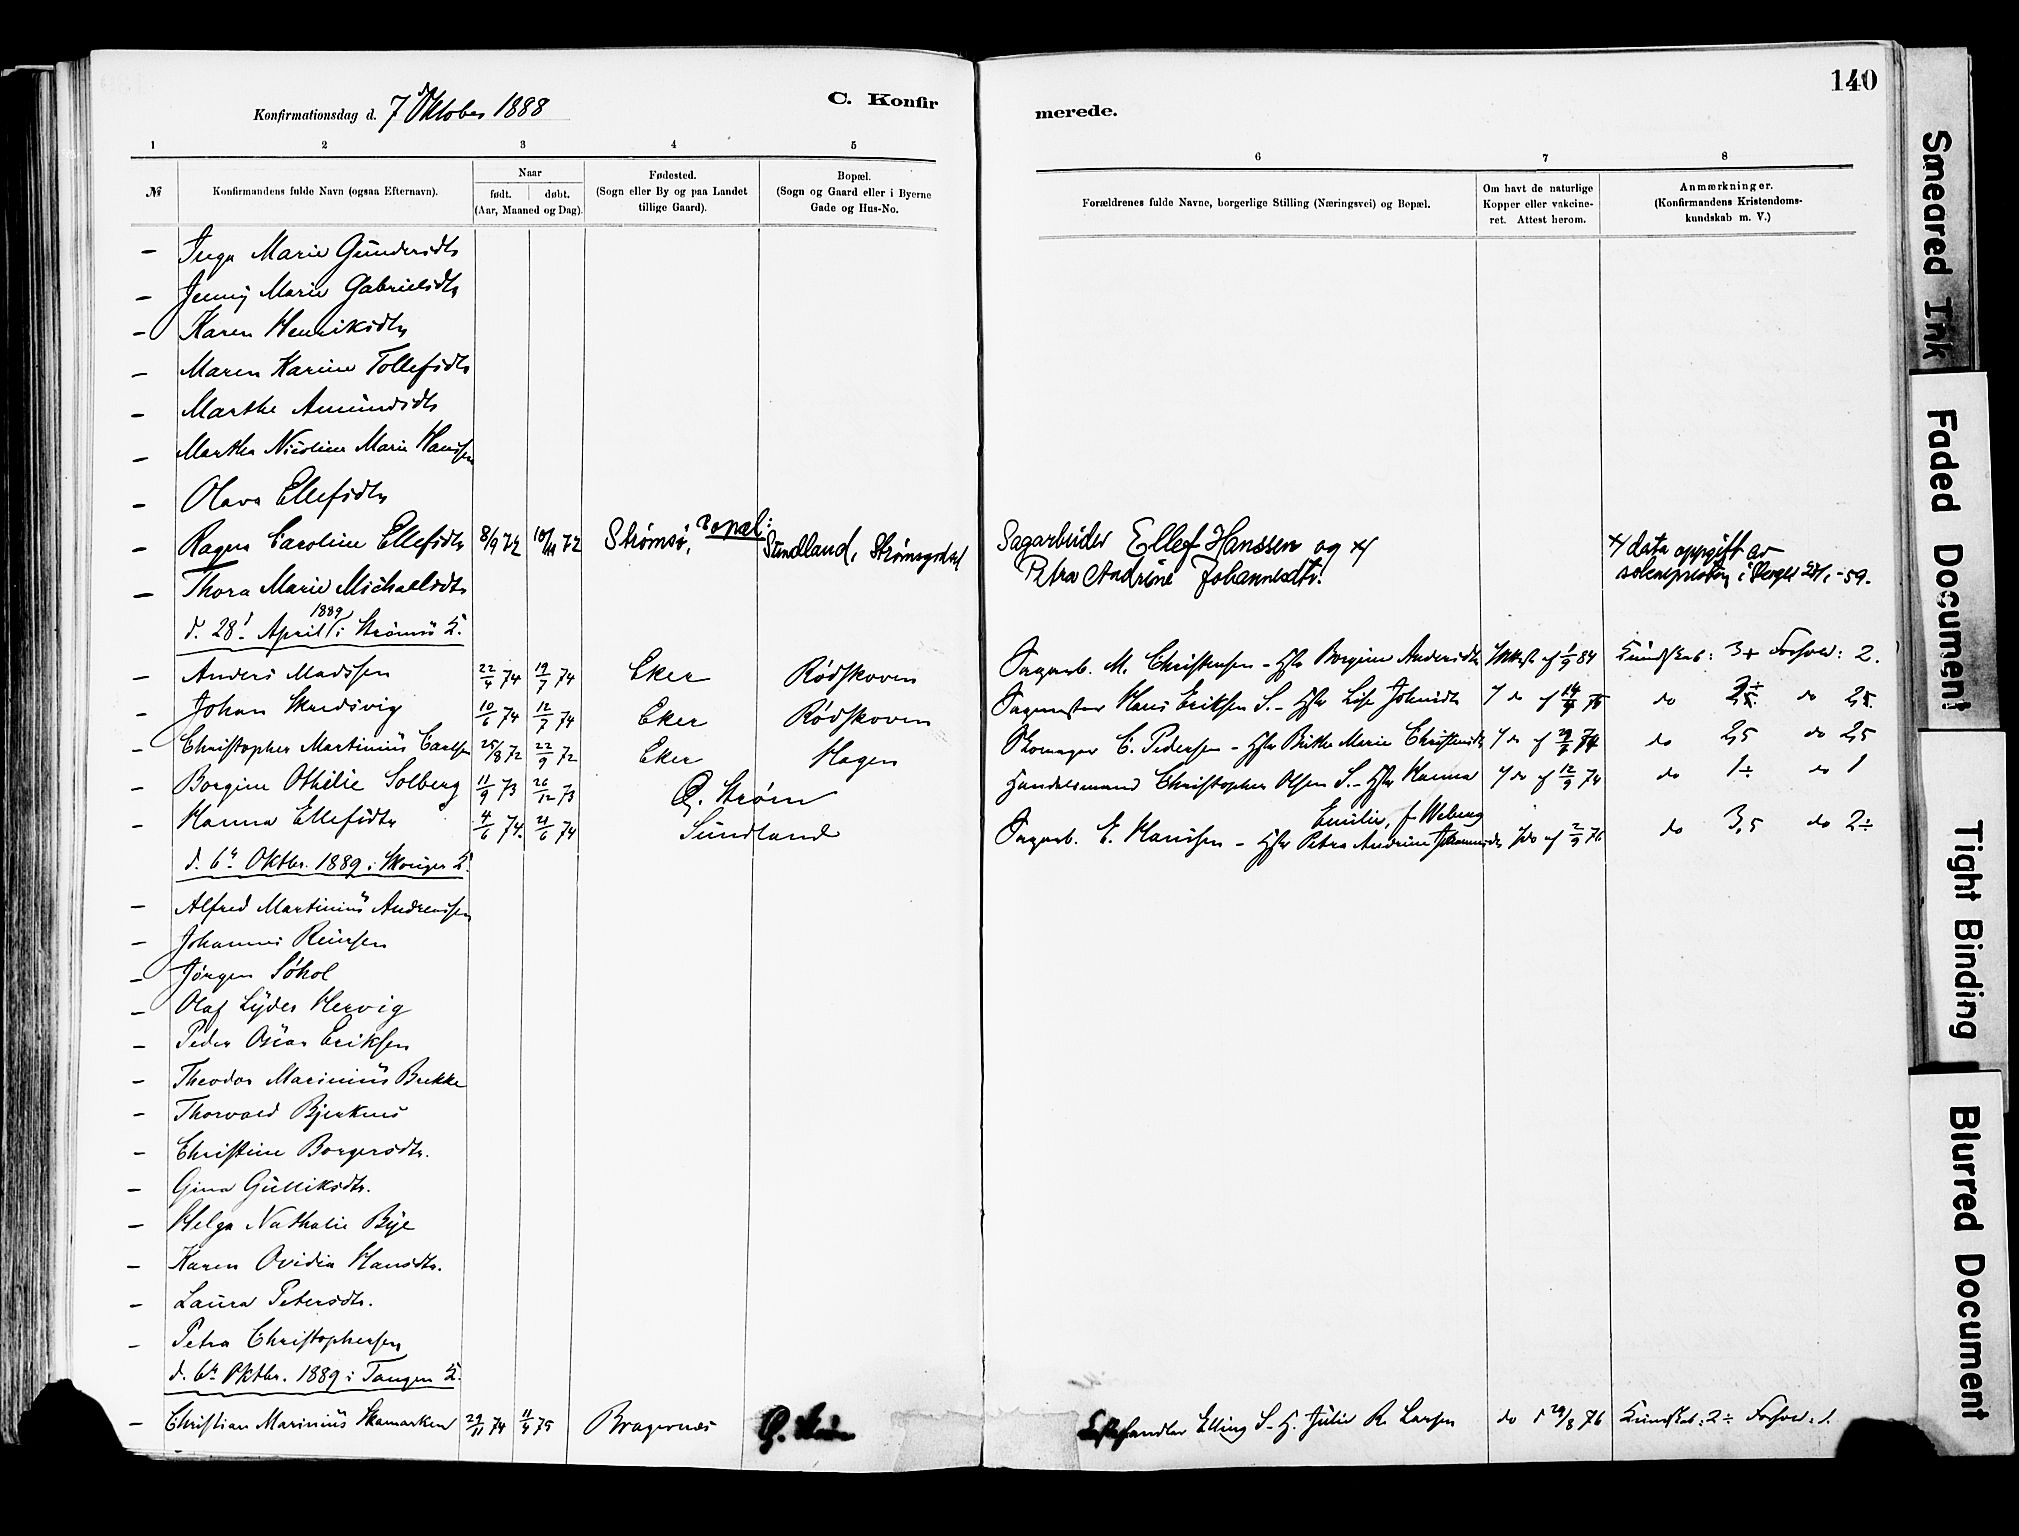 140
C. Konfirmerede.
Konfirmationsdag d. 7d Oktober 1888
1 2 3 4 5 6 7 8
№
Konfirmandens fulde Navn (ogsaa Efternavn).
Naar
født. døbt.
(Aar, Maaned og Dag).
Fødested.
(Sogn eller By og paa Landet
tillige Gaard).
Bopæl.
(Sogn og Gaard eller i Byerne
Gade og Hus-No.
Forældrenes fulde Navne, borgerlige Stilling (Næringsvei) og Bopæl.
Om havt de naturlige
Kopper eller vakcine-
ret. Attest herom.
Anmærkninger.
(Konfirmandens Kristendoms-
kundskab m. V.)
– Inga Marie Gundersdtr
– Jenny Marie Gabrielsdtr
– Karen Henriksdtr
– Maren Karine Tollefsdtr
– Marthe Amundsdtr
– Martha Nicoline Marie Hanssen
– Olava Ellefsdtr
– Ragna Caroline Ellefsdtr 8/9 72 10/11 72 Strømsø, Bopæl: Sundland, Strømsgodset Sagarbeider Ellef Hanssen og x) Petra Andrine Johannesdtr. x) data oppgift av soknepresten i
– Thora Marie Michaelsdtr
d. 28d April 1889 i Strømsø K.
– Anders Madssen 22/4 74 19/7 74 Eker Rødskoven Sagarb. M. Christensen – Hstr Borgine Andersdtr Attest af 1/9 84 Kundskab: 3+ Forhold: 2.
– Johan Skredsvig 10/6 74 12/7 74 Eker Rødskoven Sagmester Hans Eriksen S. – Hstr do af do do
– Christopher Martinius Carlsen 25/8 72 22/9 72 Eker Hagen C. Pedersen – Hstr Birthe Marie do af do 2,5 do 2,5
– Borgine Othilie Solberg 11/9 73 26/12 73 G. Strøm Handelsmand Christopher Olsen S. – Hstr Hanna Emilie, f Weberg do af 12/9 74 do 1÷ do 1
– Hanna Ellefsdtr 4/6 74. 21/6 74 Sundland Sagarb. E. Hanssen – Hstr Petra Andrine Johannesdtr do af 2/9 76 do 3,5 do 2÷
d. 6te Oktbr. 1889 i Skouger K.
– Alfred Martinius Andreassen
– Johannes Reiersen
– Jørgen Søhol
– Olaf Lyder Hervig
– Peder Oscar Eriksen
– Theodor Marinius Brekke
– Thorvald Bjerknes
– Christine Borgersdtr.
– Gina Gulliksdtr.
– Helga Nathalie Bye
– Karen Ovidia Hansdtr.
– Laura Petersdtr.
– Petra Christophersen
d. 6te Oktbr. 1889 i Tangen K.
– Christian Marinius Skamarken 29/11 74 11/4 75 Bragernæs G. Elling S – H. Julie R. Larsen do d 29/8 76 Kundskab: 2÷ Forhold: 1.
Smeared Ink
Faded Document
Tight Binding
Blurred Document